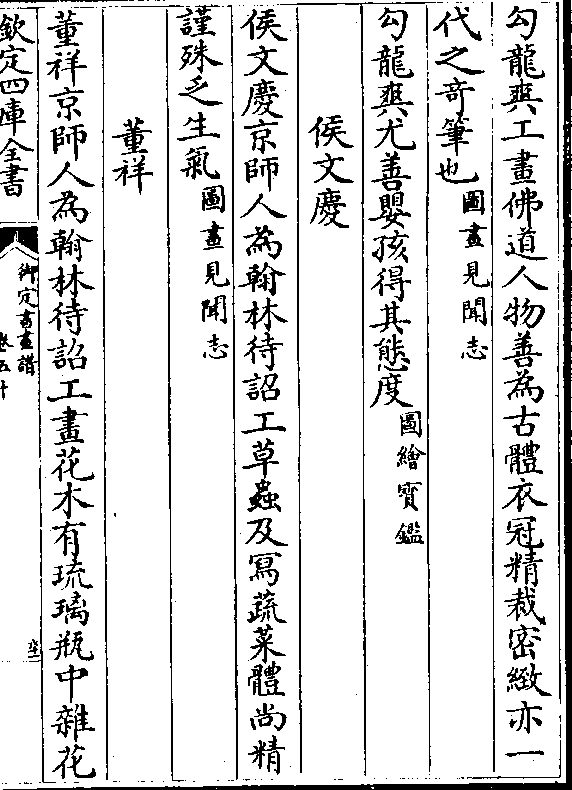 勾龍爽工畫佛道人物善為古體衣冠精裁密緻亦一
代之奇筆也圖畫見聞志
勾龍爽尤善嬰孩得其態度圖繪寳鑑
侯文慶
侯文慶京師人為翰林待詔工草蟲及寫蔬菜體尚精
謹殊乏生氣圖畫見聞志
董祥
董祥京師人為翰林待詔工畫花木有琉璃瓶中雜花
欽定四庫全書
御定書畫譜
卷五十